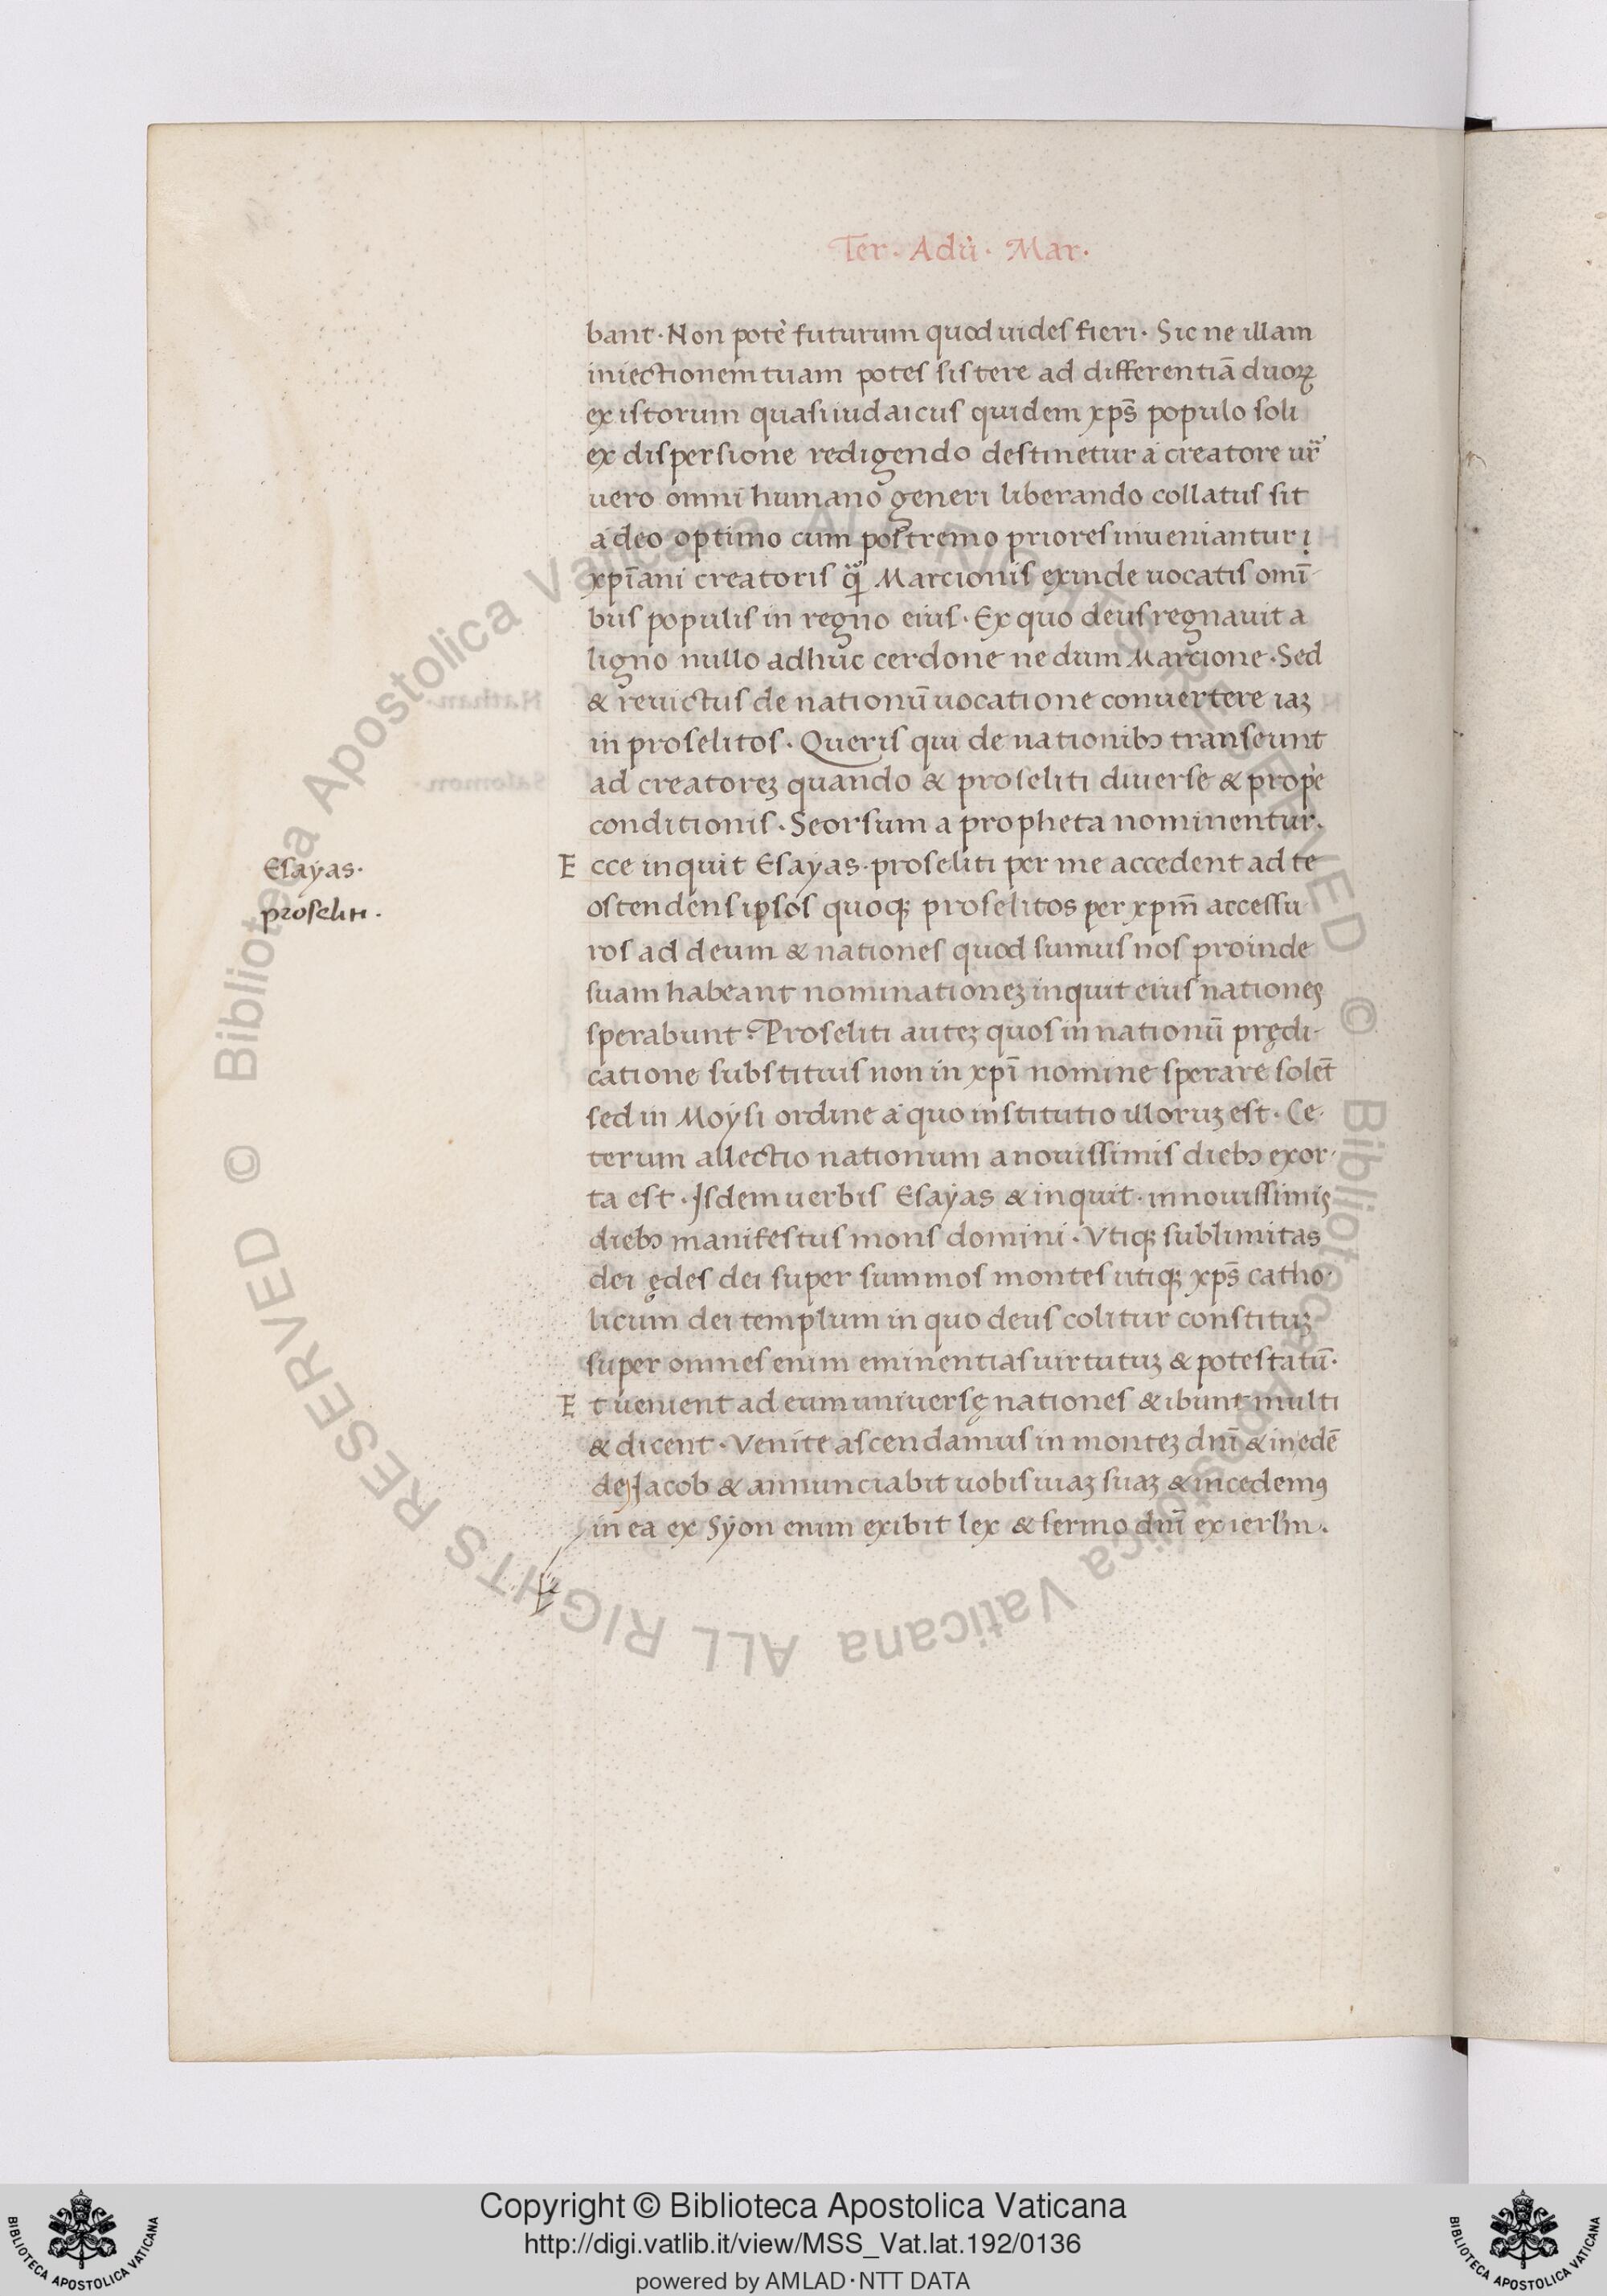 Ter. Adu̇. Mar.
bant. Non potė futurum quod uides fieri. Sic ne illam
iniectionem tuam potes sistere ad differentiā duoꝝ
existorum quasi iudaicus quidem xp̄s populo soli
ex dispersione redigendo destinetur a creatore ur̄
uero omni humano generi liberando collatus sit
a deo optimo cum postremo priores inueniantur
xp̄iani creatoris q̃ Marcionis exinde uocatis omī-
bus populis in regno eius. Ex quo deus regnauit a
ligno nullo adhuc cerdone ne dum Marcione. Sed
& reuictus de nationū uocatione conuertere iaꝫ
in proselitos. Queris qui de nationibꝰ transeunt
ad creatoreꝫ quando & proseliti diuerse & prop̄e
conditionis. Seorsum a propheta nominentur.
Esayas.
Ecce inquit Esayas. proseliti per me accedent ad te
proseliti.
ostendens ipsos quoqꝫ proselitos per xp̄m accessu
ros ad deum & nationes quod sumus nos proinde
suam habeant nominationeꝫ inquit eius nationes
sperabunt. Proseliti auteꝫ quos in nationū prędi-
catione substituis non in xp̄i nomine sperare solēt
sed in Moysi ordine a quo institutio illoruꝫ est. Ce-
terum allectio nationum a nouissimis diebꝰ exor-
ta est. Isdem uerbis Esayas & inquit. in nouissimis
diebꝰ manifestus mons domini. Vtiqꝫ sublimitas
dei ędes dei super summos montes utiqꝫ xp̄s catho-
licum dei templum in quo deus colitur constitutꝫ
super omnes enim eminentias uirtutuꝫ & potestatū.
Et uenient ad eum uniuersę nationes & ibunt multi
& dicent. Venite ascendamus in monteꝫ dn̄i & in edē
dei Jacob & annunciabit uobis uiaꝫ suaꝫ & incedemꝰ
in ea ex Syon enim exibit lex & sermo dn̄i ex ierl̄m.
Copyright © Biblioteca Apostolica Vaticana
http://digi.vatlib.it/view/MSS_Vat.lat.192/0136
powered by AMLAD·NTT DATA